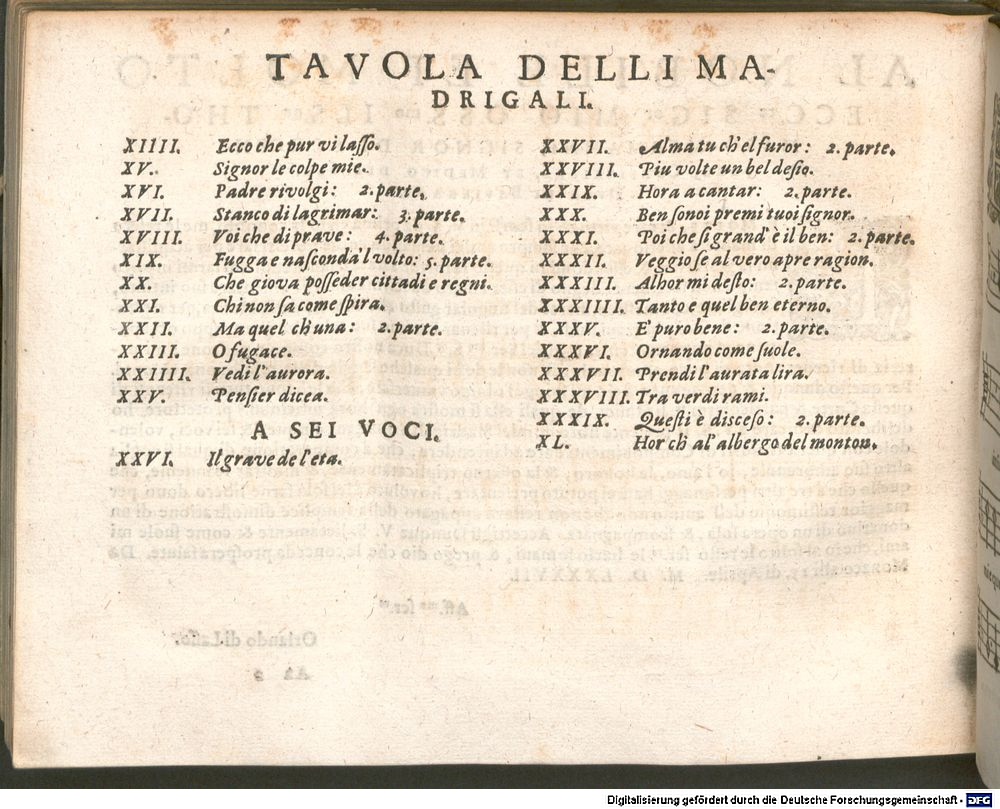 TAVOLA DELLI MA-
DRIGALI.
XIIII. Ecco che pur vi lasso.
XV. Signor le colpe mie.
XVI. Padre rivolgi: 2. parte.
XVII. Stanco di lagrimar: 3. parte.
XVIII. Voi che di prave: 4. parte.
XIX. Fugga e nasconda'l volto: 5. parte.
XX. Che giova posseder cittadi e regni.
XXI. Chi non sa come spira.
XXII. Ma quel ch'una: 2. parte.
XXIII. O fugace.
XXIIII. Vedi l'aurora.
XXV. Pensier dicea.
A SEI VOCI.
XXVI. Il grave de l'eta.
XXVII. Alma tu ch'el furor: 2. parte.
XXVIII. Piu volte un bel desio.
XXIX. Hora a cantar: 2. parte.
XXX. Ben sono i premi tuoi signor.
XXXI. Poi che si grand'è il ben: 2. parte.
XXXII. Veggio se al vero apre ragion.
XXXIII. Alhor mi desto: 2. parte.
XXXIIII. Tanto e quel ben eterno.
XXXV. E' puro bene: 2. parte.
XXXVI. Ornando come suole.
XXXVII. Prendi l'aurata lira.
XXXVIII. Tra verdi rami.
XXXIX. Questi è disceso: 2. parte.
XL. Hor ch'al'albergo del monton.
Digitalisierung gefördert durch die Deutsche Forschungsgemeinschaft - DFG